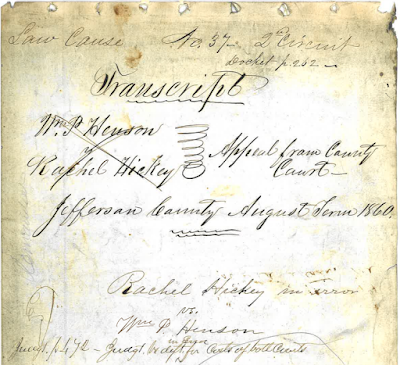 Law Cause No. 37 2d Circuit
Docket p. 262
Transcript
Wm. P. Henson
v
Rachel Hickey
Appeal from County
Court
Jefferson County August Term 1860.
Rachel Hickey in Error
vs.
Wm P. Henson
in Error
Judgt. p. 472 - Judgt. vs for Costs of both Courts